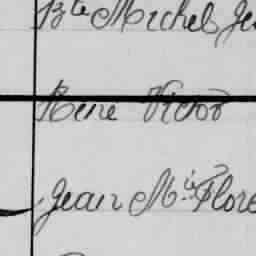 Bte Michel Je
René Victor
Jean M.ie Flore